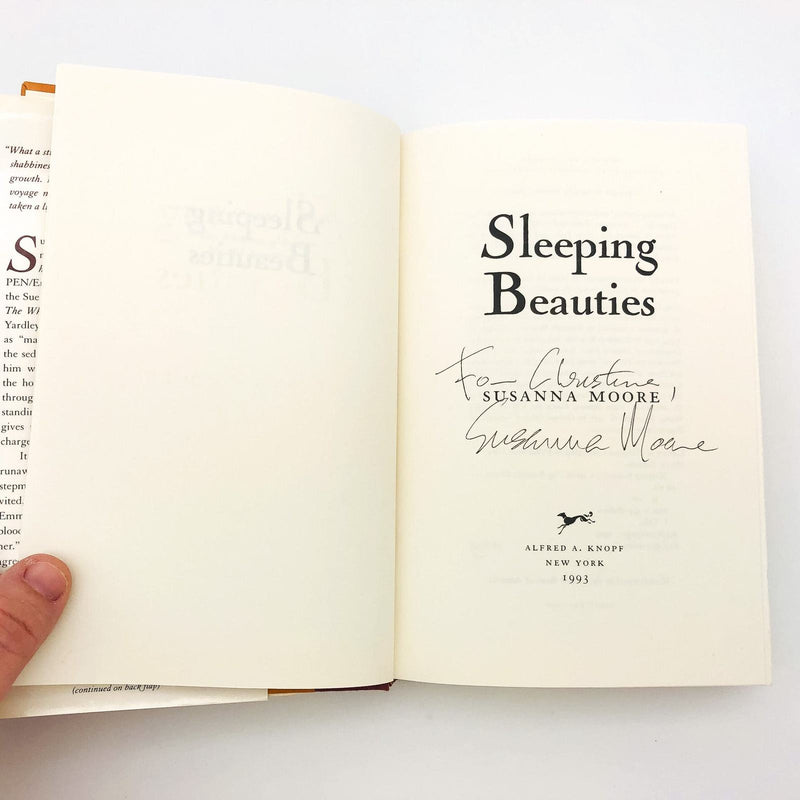 "What a
shabbines
growth.
voyage
taken a
S
PEN/
the Sue
The
Yardley
as "ma
the sed
him w
the ho
throug
standin
gives
charge
It
runaw
stepm
vited.
Emm
blood
her."
agree
(continued on back flap)
Sleeping
Beauties
For Christine,
SUSANNA MOORE
Susanna Moore
ALFRED A. KNOPF
NEW YORK
1993